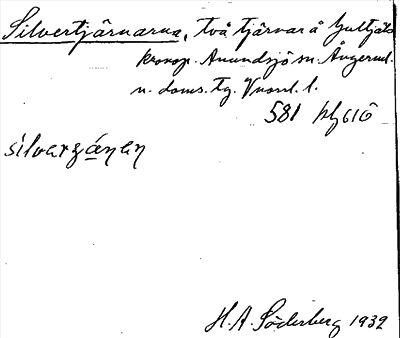 Silvertjärnarna, två tjärnar å Gultjäls
kronop. Anundsjö sn. Ångerml.
n. doms. tg. Vnorrl. l.
581
silvarʒáŋaŋ
H. A. Söderberg 1932